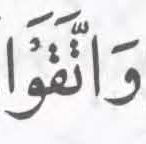 وَاتَّقَوْا